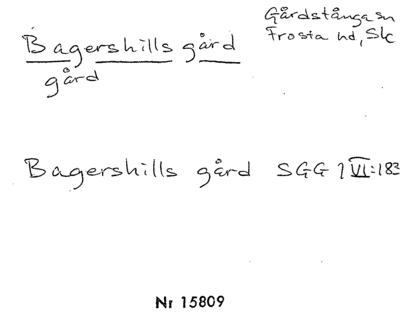 Bagershills gård
gård
Gårdstånga sn
Frosta hd, Sk
Bagershills gård SGG 1 VI:183
Nr 15809